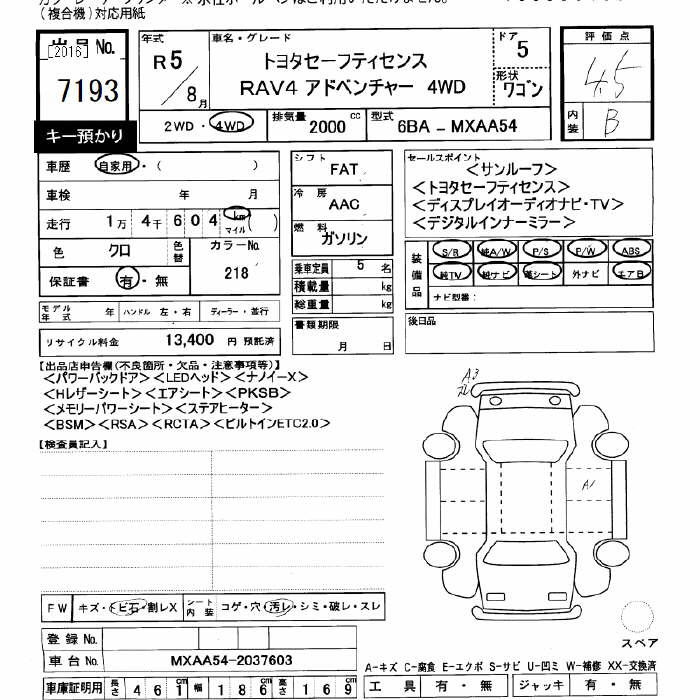 (複合機)対応用紙
出品 No.
[2016]
7193
キー預かり
年式
R5/8月
車名・グレード
トヨタセーフティセンス
RAV4 アドベンチャー 4WD
ドア
5
形状
ワゴン
評価点
4.5
内装
B
2WD・4WD
排気量 2000 cc
型式 6BA-MXAA54
車歴 自家用・(
車検 年 月
走行 1万 4千 6 0 4 km マイル ( )
色 クロ 色替
カラーNo.
218
保証書 有・無
シフト
FAT
冷房
AAC
燃料
ガソリン
乗車定員 5 名
積載量 kg
総重量 kg
セールスポイント
<サンルーフ>
<トヨタセーフティセンス>
<ディスプレイオーディオナビ・TV>
<デジタルインナーミラー>
装備品
S/R 純A/W P/S P/W ABS
純TV 純ナビ 革シート 外ナビ エアB
ナビ型番:
モデル年式 年 ハンドル 左・右 ディーラー・並行
リサイクル料金 13,400 円 預託済
書類期限
月 日
後日品
【出品店申告欄(不良箇所・欠品・注意事項等)】
<パワーバックドア><LEDヘッド><ナノイーX>
<Hレザーシート><エアシート><PKSB>
<メモリーパワーシート><ステアヒーター>
<BSM><RSA><RCTA><ビルトインETC2.0>
【検査員記入】
A3
A1
FW キズ・トビ石・割レX
シート内装 コゲ・穴・汚レ・シミ・破レ・スレ
登録 No.
車台 No. MXAA54-2037603
スペア
A-キズ C-腐食 E-エクボ S-サビ U-凹ミ W-補修 XX-交換済
車庫証明用 長さ 461 cm 幅 186 cm 高さ 169 cm
工具 有・無 ジャッキ 有・無